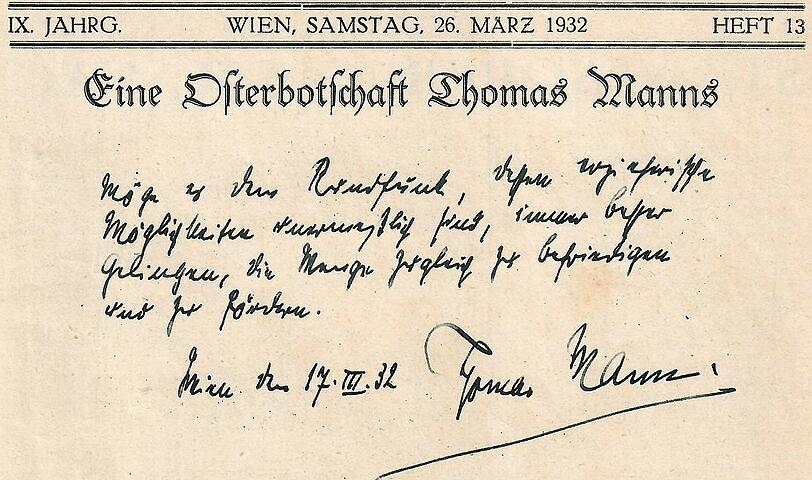 IX. JAHRG. WIEN, SAMSTAG, 26. MÄRZ 1932 HEFT 13
Eine Osterbotschaft Thomas Manns
Möge es dem Rundfunk, dessen erzieherische
Möglichkeiten unermeßlich sind, immer besser
gelingen, die Menge zugleich zu befriedigen
und zu fördern.
Wien den 17. III. 32 Thomas Mann.